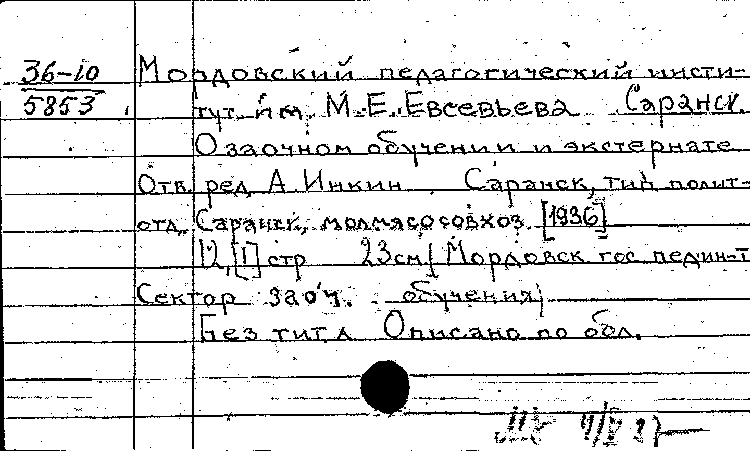 36-10 Мордовский педагогический инсти-
5853 тут им. М.Е. Евсевьева Саранск.
О заочном обучении и экстернате
Отв. ред. А. Инкин. Саранск, тип. полит-
отд. Саранск. молмясосовхоз. [1936]
12, [1] стр 23 см (Мордовск гос пединт
Сектор заоч. обучения)
Без тит л Описано по обл.